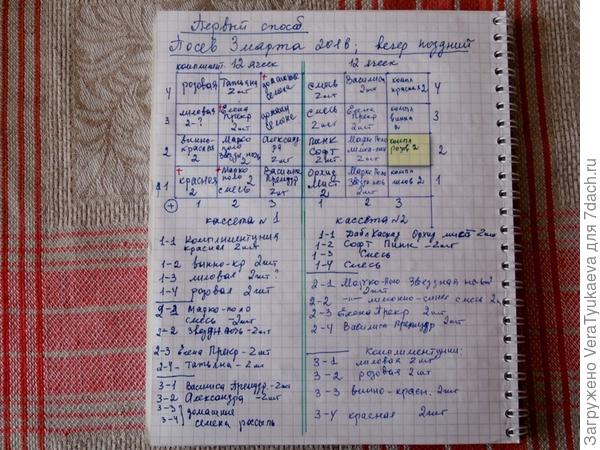 Первый способ
Посев 3 марта 2018; вечер поздний
12 ячеек
12 ячеек
4 розовая Татьяна 2 шт домашние семена
смесь 2 шт Василиса 2 шт красная 2 4
3 лиловая 2-? Елена Прекр 2 шт домашн семена
смесь 2 шт Елена Прекр 2 шт винно 2 3
2 винно-красная 2 Марко поло Звездн ночь 2 Александра 2 шт
Пинк Софт 2 шт Марко Поло 2 шт розов 2 2
1 красная 2 Марко поло 2 смесь Василиса 2 шт
Орхид Мист 2 шт Марко Поло Звездн ночь 2 шт лилов 2 1
1 2 3
1 2 3
кассета №1
кассета №2
1-1 Комплиментуния
красная 2 шт
1-2 винно-кр 2 шт
1-3 лиловая 2 шт?
1-4 розовая 2 шт
2-1 Марко-поло
смесь -2 шт
2-2 Звездн. ночь -2 шт
2-3 Елена Прекр -2 шт
2-4 - Татьяна -2 шт
3-1 василиса -2 шт
3-2 Александра -2 шт
3-3 домашние
3-4 семена россыпь
1-1 Дабл Каскад Орхид мист 2 шт
1-2 Софт Пинк -2 шт
1-3 Смесь
1-4 Смесь
2-1 Марко-поло Звездная ночь
2 шт
2-2 -"- лимонно-синяя смесь 2
2-3 Елена Прекр 2 шт
2-4 Василиса 2 шт
Комплиментуния:
3-1 лиловая 2 шт
3-2 розовая 2 шт
3-3 винно-красн. 2 шт
3-4 красная 2 шт
Загружено VeraTyukaeva для 7dach.ru